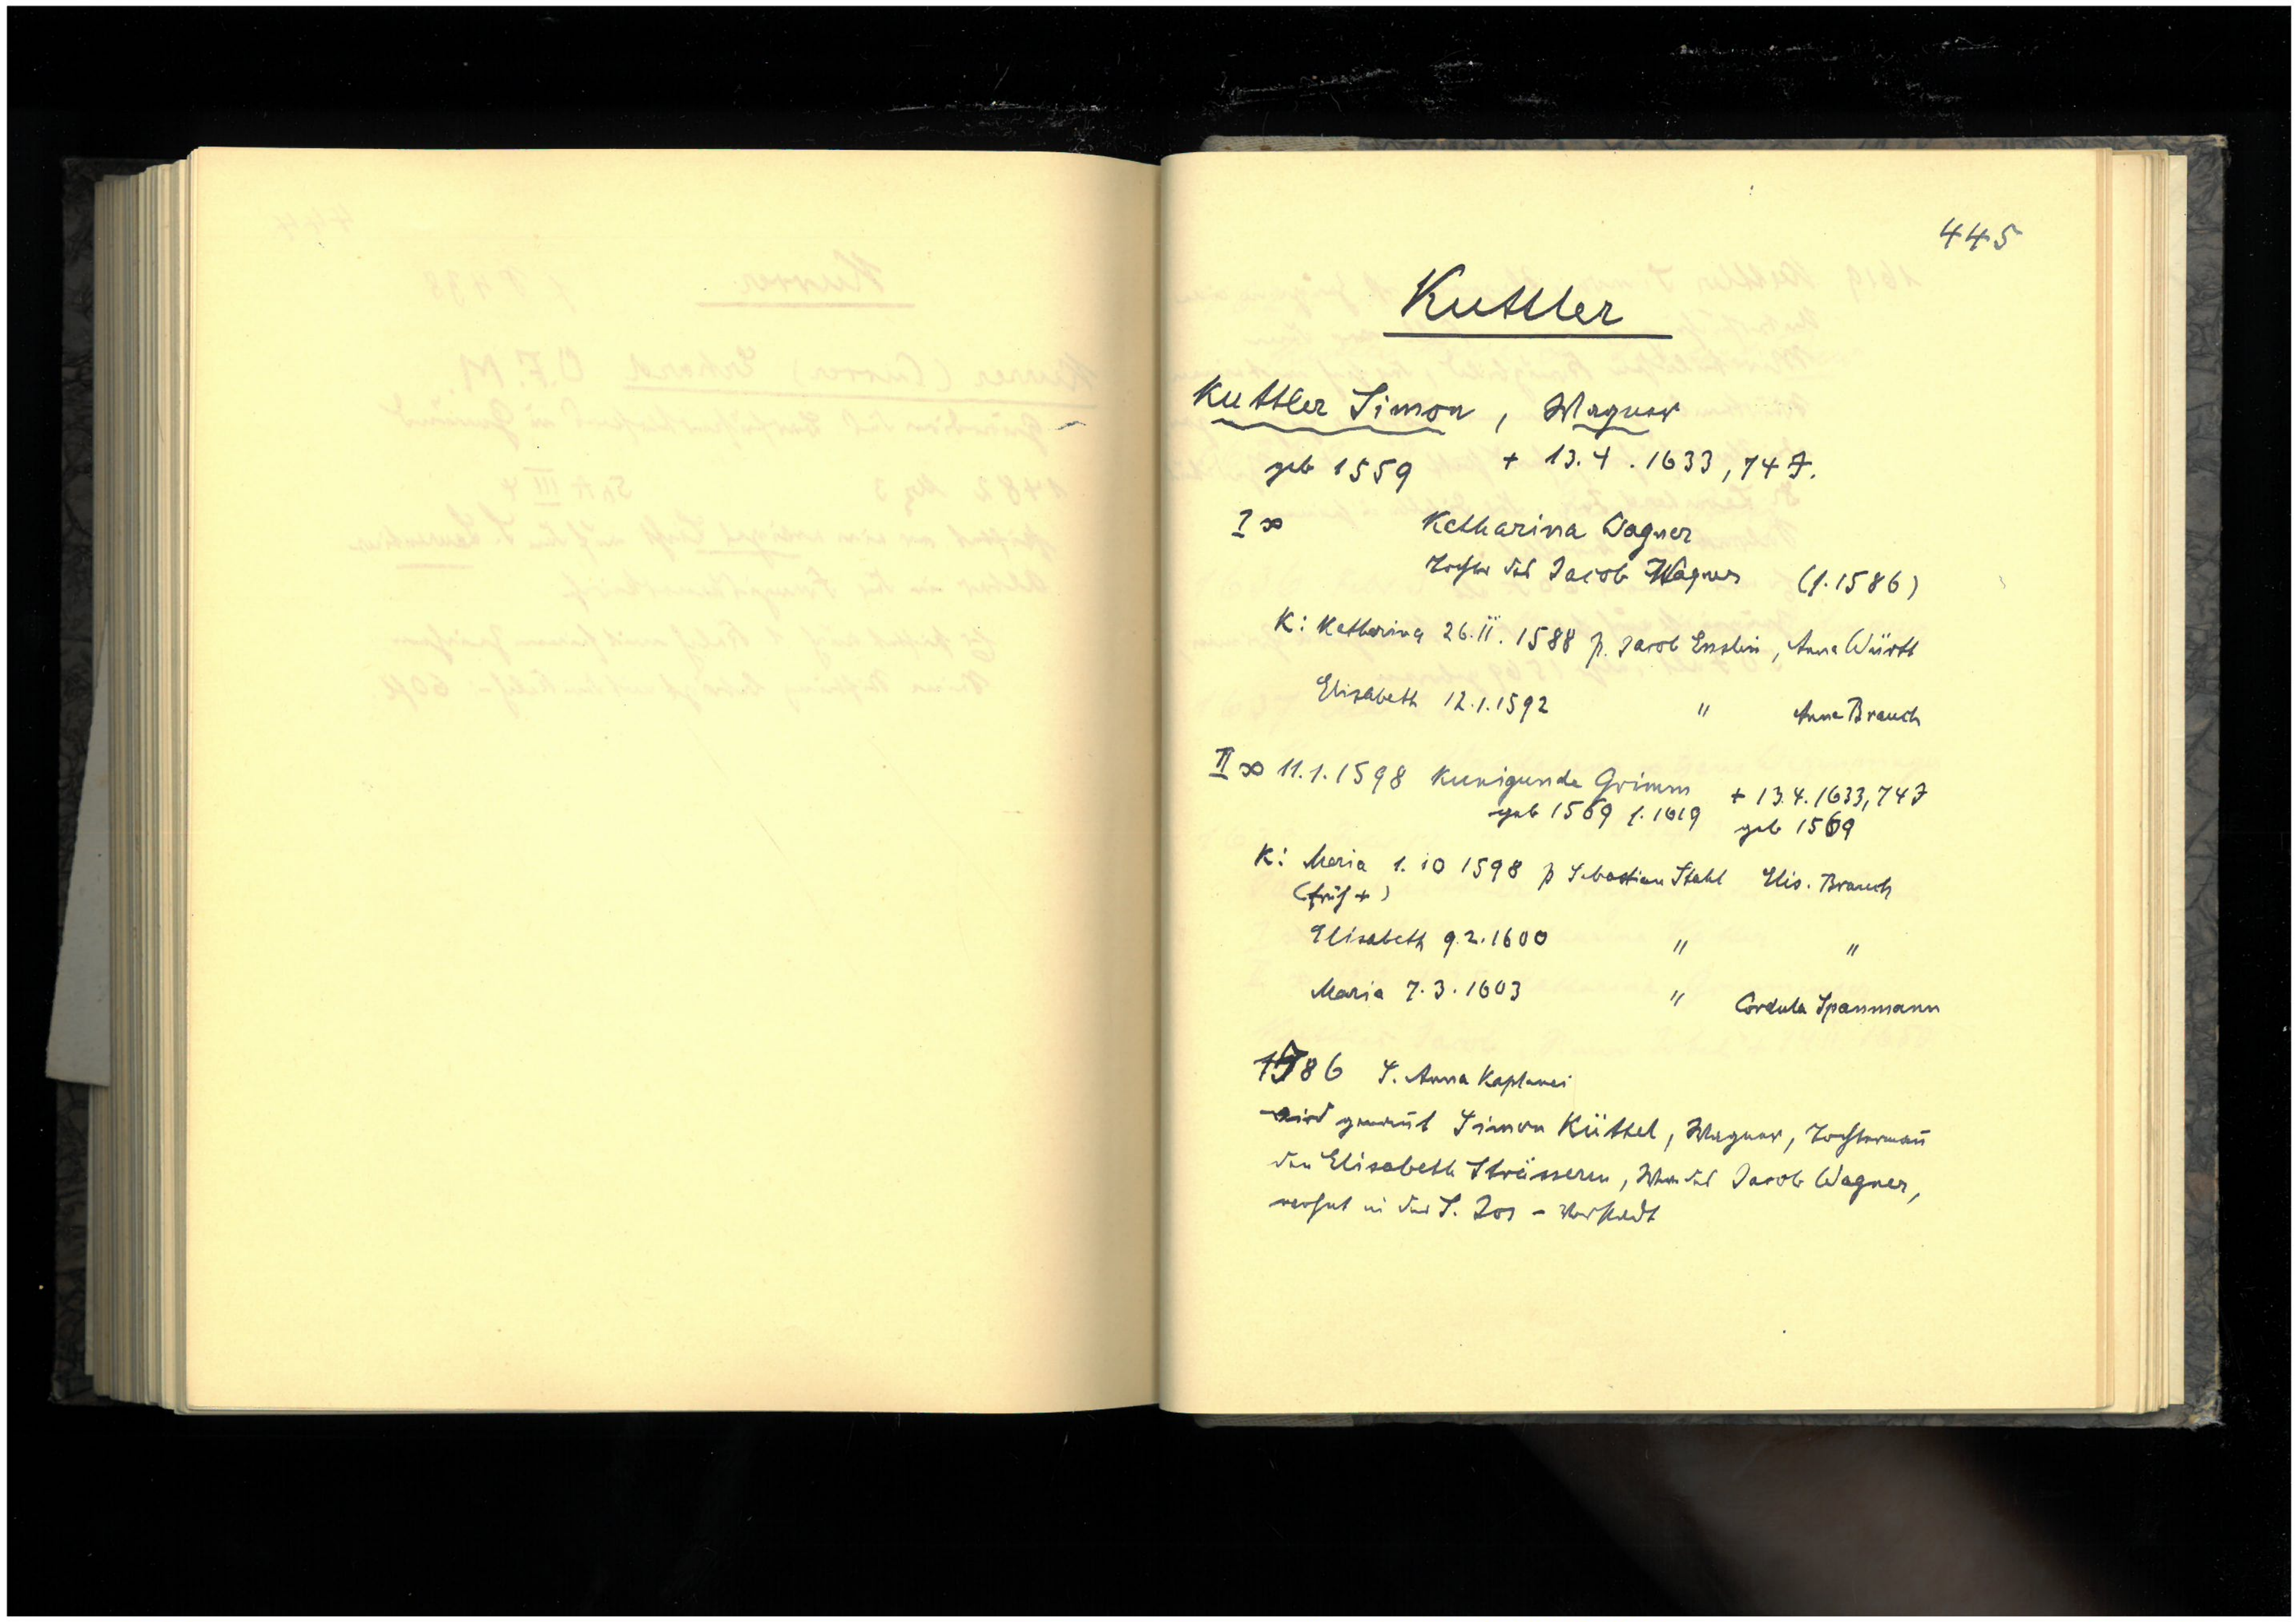 445
Kuttler
Kuttler Simon, Wagner
geb 1559 + 13.4.1633, 74 J.
I ∞ Katharina Wagner
Tochter des Jacob Wagner (s. 1586)
K: Katharina 26.II.1588 p. Jacob Enslin, Anna Württ
Elisabeth 12.1.1592 " Anna Brauch
II ∞ 11.1.1598 Kunigunde Grimm + 13.4.1633, 74 J
geb 1569 s. 1619 geb 1569
K: Maria 1.10 1598 p Sebastian Stahl Elis. Brauch
(früh +)
Elisabeth 9.2.1600 " "
Maria 7.3.1603 " Cordula Spanmann
1586 S. Anna Kaplanei
wird genannt Simon Küttel, Wagner, Tochtermañ
der Elisabeth Strässeren, Wwe des Jacob Wagner,
wohnt in der S. Jos - Vorstadt